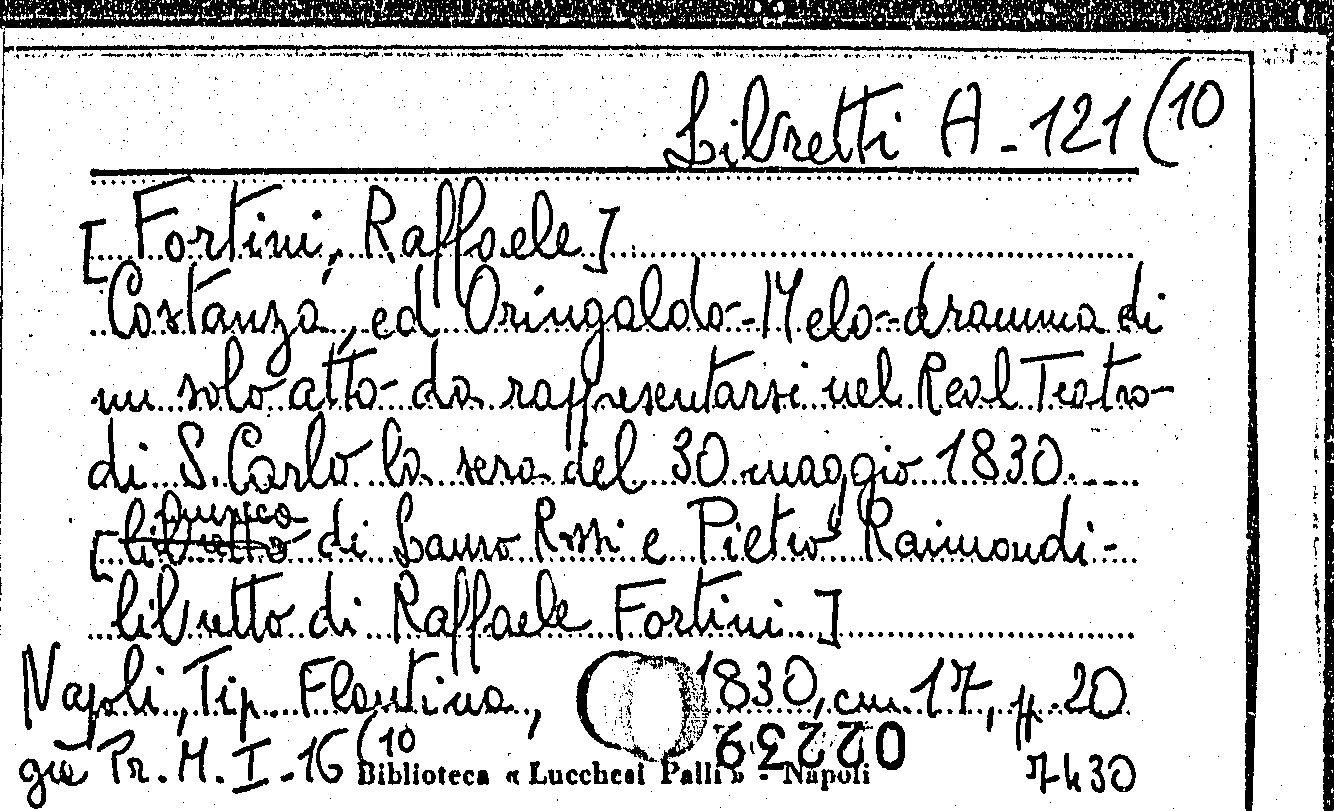 Libretti A-121 (10
[Fortini, Raffaele]
Costanza, ed Oringaldo-Melo-dramma di
un solo atto-da rappresentarsi nel Real Teatro-
di S. Carlo la sera del 30 maggio 1830.
[libretto musica di Lauro Rossi e Pietro Raimondi-
libretto di Raffaele Fortini]
Napoli, Tip. Flautina, 1830, cm. 17, pp. 20
già Pr. M. I-16 (10
02239
7430
Biblioteca « Lucchesi Palli » - Napoli